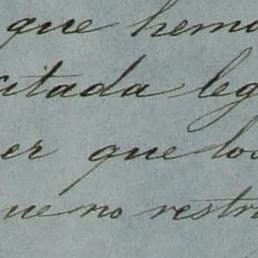 que hemo
citada leg
er que los
ue no restr